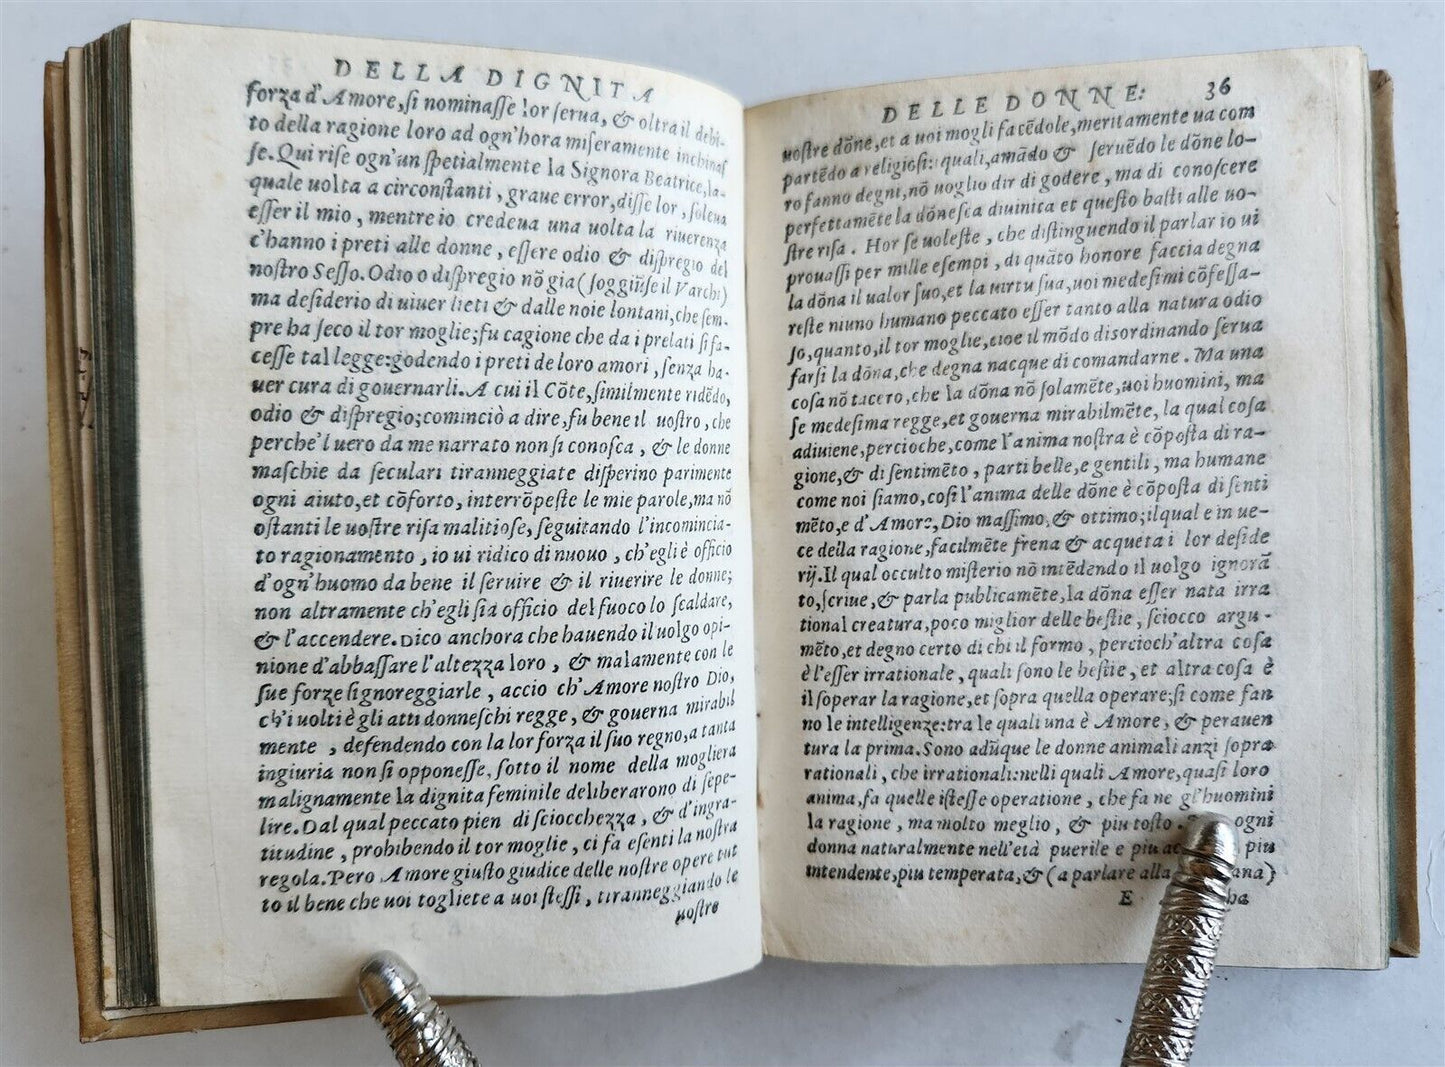 DELLA DIGNITA
forza d'Amore, si nominaſſe lor ſerua, & oltra il debi-
to della ragione loro ad ogn'hora miſeramente inchinaſ
ſe. Qui riſe ogn'un ſpetialmente la Signora Beatrice, la-
quale uolta a circonſtanti, graue error, diſſe lor, ſoleua
eſſer il mio, mentre io credeua una uolta la riuerenza
c'hanno i preti alle donne, eſſere odio & diſpregio del
noſtro Seſſo. Odio o diſpregio nō gia (ſoggiūſe il Varchi)
ma deſiderio di uiuer lieti & dalle noie lontani, che ſem-
pre ha ſeco il tor moglie; fu cagione che da i prelati ſi fa-
ceſſe tal legge: godendo i preti de loro amori, ſenza ha-
uer cura di gouernarli. A cui il Cōte, ſimilmente ridēdo,
odio & diſpregio; cominciò a dire, fu bene il uoſtro, che
perche'l uero da me narrato non ſi conoſca, & le donne
maſchie da ſeculari tiranneggiate diſperino parimente
ogni aiuto, et cōforto, interrōpeſte le mie parole, ma nō
oſtanti le uoſtre riſa malitioſe, ſeguitando l'incomincia-
to ragionamento, io ui ridico di nuouo, ch'egli è officio
d'ogn'huomo da bene il ſeruire & il riuerire le donne;
non altramente ch'egli ſia officio del fuoco lo ſcaldare,
& l'accendere. Dico anchora che hauendo il uolgo opi-
nione d'abbaſſare l'altezza loro, & malamente con le
ſue forze ſignoreggiarle, accio ch'Amore noſtro Dio,
ch'i uolti è gli atti donneſchi regge, & gouerna mirabil
mente, defendendo con la lor forza il ſuo regno, a tanta
ingiuria non ſi opponeſſe, ſotto il nome della mogliera
malignamente la dignita feminile deliberarono di ſepe-
lire. Dal qual peccato pien di ſciocchezza, & d'ingra-
titudine, prohibendo il tor moglie, ci fa eſenti la noſtra
regola. Pero Amore giuſto giudice delle noſtre opere tut
to il bene che uoi togliete a uoi ſteſſi, tiranneggiando le
uoſtre
DELLE DONNE: 36
uoſtre dōne, et a uoi mogli facēdole, meritamente ua com
partēdo a religioſi: quali, amādo & ſeruēdo le dōne lo-
ro fanno degni, nō uoglio dir di godere, ma di conoſcere
perfettamēte la dōneſca diuinita et queſto baſti alle uo-
ſtre riſa. Hor ſe uoleſte, che diſtinguendo il parlar io ui
prouaſſi per mille eſempi, di quāto honore faccia degna
la dōna il ualor ſuo, et la uirtu ſua, uoi medeſimi cōfeſſa-
reſte niuno humano peccato eſſer tanto alla natura odio
ſo, quanto, il tor moglie, cioe il mōdo diſordinando ſerua
farſi la dōna, che degna nacque di comandarne. Ma una
coſa nō tacero, che la dōna nō ſolamēte, uoi huomini, ma
ſe medeſima regge, et gouerna mirabilmēte, la qual coſa
adiuiene, percioche, come l'anima noſtra è cōpoſta di ra-
gione, & di ſentimēto, parti belle, e gentili, ma humane
come noi ſiamo, coſi l'anima delle dōne è cōpoſta di ſenti
mēto, e d'Amore, Dio maſſimo, & ottimo; il qual e in ue-
ce della ragione, facilmēte frena & acqueta i lor deſide
rij. Il qual occulto miſterio nō intēdendo il uolgo ignorā
to, ſcriue, & parla publicamēte, la dōna eſſer nata irra
tional creatura, poco miglior delle beſtie, ſciocco argu-
mēto, et degno certo di chi il formo, percioch'altra coſa
è l'eſſer irrationale, quali ſono le beſtie, et altra coſa è
il ſoperar la ragione, et ſopra quella operare; ſi come fan
no le intelligenze: tra le quali una è Amore, & perauen
tura la prima. Sono adūque le donne animali anzi ſopra
rationali, che irrationali: nelli quali Amore, quaſi loro
anima, fa quelle iſteſſe operatione, che fa ne gl'huomini
la ragione, ma molto meglio, & piu toſto. ogni
donna naturalmente nell'età puerile e piu piu
intendente, piu temperata, & (a parlare alla
E